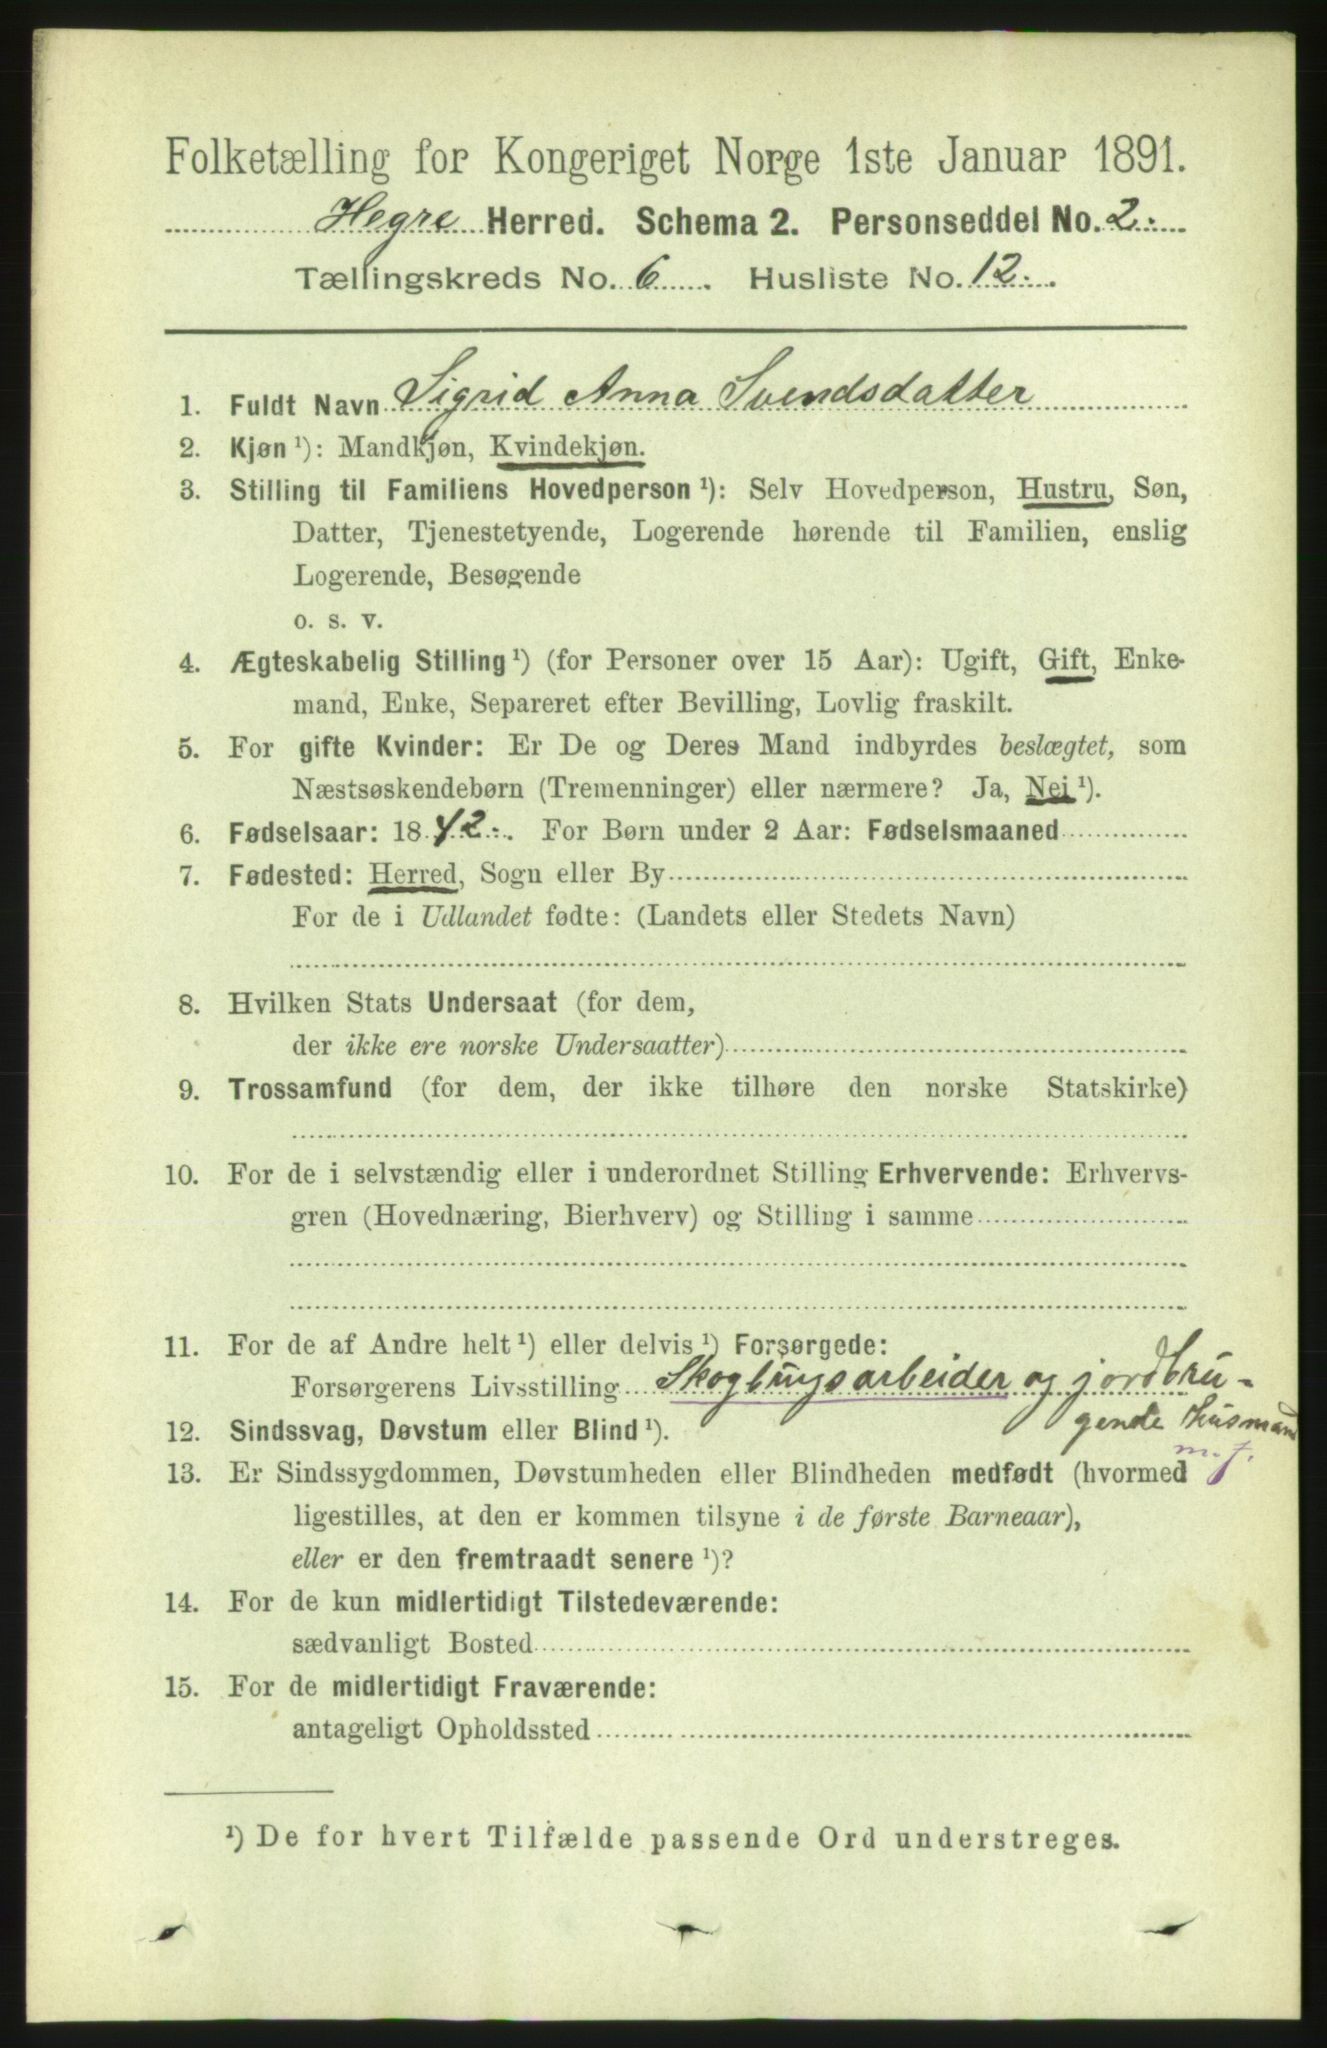 Folketælling for Kongeriget Norge 1ste Januar 1891.
Hegre Herred. Schema 2. Personseddel No. 2.
Tællingskreds No. 6. Husliste No. 12.
1. Fuldt Navn Sigrid Anna Svendsdatter
2. Kjøn ¹): Mandkjøn, Kvindekjøn.
3. Stilling til Familiens Hovedperson ¹): Selv Hovedperson, Hustru, Søn,
Datter, Tjenestetyende, Logerende hørende til Familien, enslig
Logerende, Besøgende
o. s. v.
4. Ægteskabelig Stilling ¹) (for Personer over 15 Aar): Ugift, Gift, Enke-
mand, Enke, Separeret efter Bevilling, Lovlig fraskilt.
5. For gifte Kvinder: Er De og Deres Mand indbyrdes beslægtet, som
Næstsøskendebørn (Tremenninger) eller nærmere? Ja, Nei ¹).
6. Fødselsaar: 1842. For Børn under 2 Aar: Fødselsmaaned
7. Fødested: Herred, Sogn eller By
For de i Udlandet fødte: (Landets eller Stedets Navn)
8. Hvilken Stats Undersaat (for dem,
der ikke ere norske Undersaatter)
9. Trossamfund (for dem, der ikke tilhøre den norske Statskirke)
10. For de i selvstændig eller i underordnet Stilling Erhvervende: Erhvervs-
gren (Hovednæring, Bierhverv) og Stilling i samme
11. For de af Andre helt ¹) eller delvis ¹) Forsørgede:
Forsørgerens Livsstilling Skogbrugsarbeider og jordbru-
gende Husmand
12. Sindssvag, Døvstum eller Blind ¹).
m. f.
13. Er Sindssygdommen, Døvstumheden eller Blindheden medfødt (hvormed
ligestilles, at den er kommen tilsyne i de første Barneaar),
eller er den fremtraadt senere ¹)?
14. For de kun midlertidigt Tilstedeværende:
sædvanligt Bosted
15. For de midlertidigt Fraværende:
antageligt Opholdssted
¹) De for hvert Tilfælde passende Ord understreges.